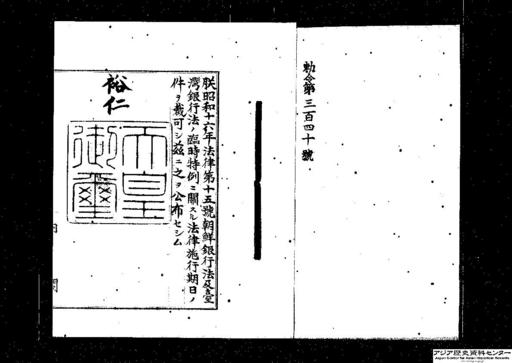 勅令第三百四十號
朕昭和十六年法律第十五號朝鮮銀行法及臺
灣銀行法ノ臨時特例ニ關スル法律施行期日ノ
件ヲ裁可シ茲ニ之ヲ公布セシム
裕仁
天皇
御璽
アジア歴史資料センター
Japan Center for Asian Historical Records